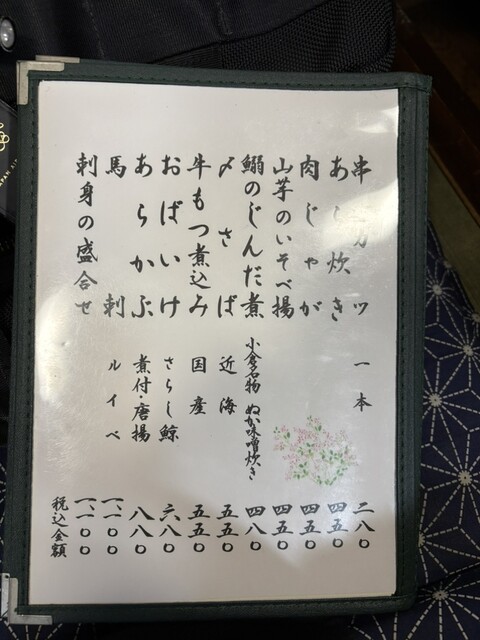 串カツ 一本 二八〇
あら炊き 四五〇
肉じゃが 四五〇
山芋のいそべ揚 四五〇
鰯のじんだ煮 小倉名物 ぬか味噌炊き 四八〇
〆さば 近海 五五〇
牛もつ煮込み 国産 五五〇
おばいけ さらし鯨 六八〇
あらかぶ 煮付・唐揚 八八〇
馬刺 ルイベ 一、一〇〇
刺身の盛合せ 一、一〇〇
税込金額